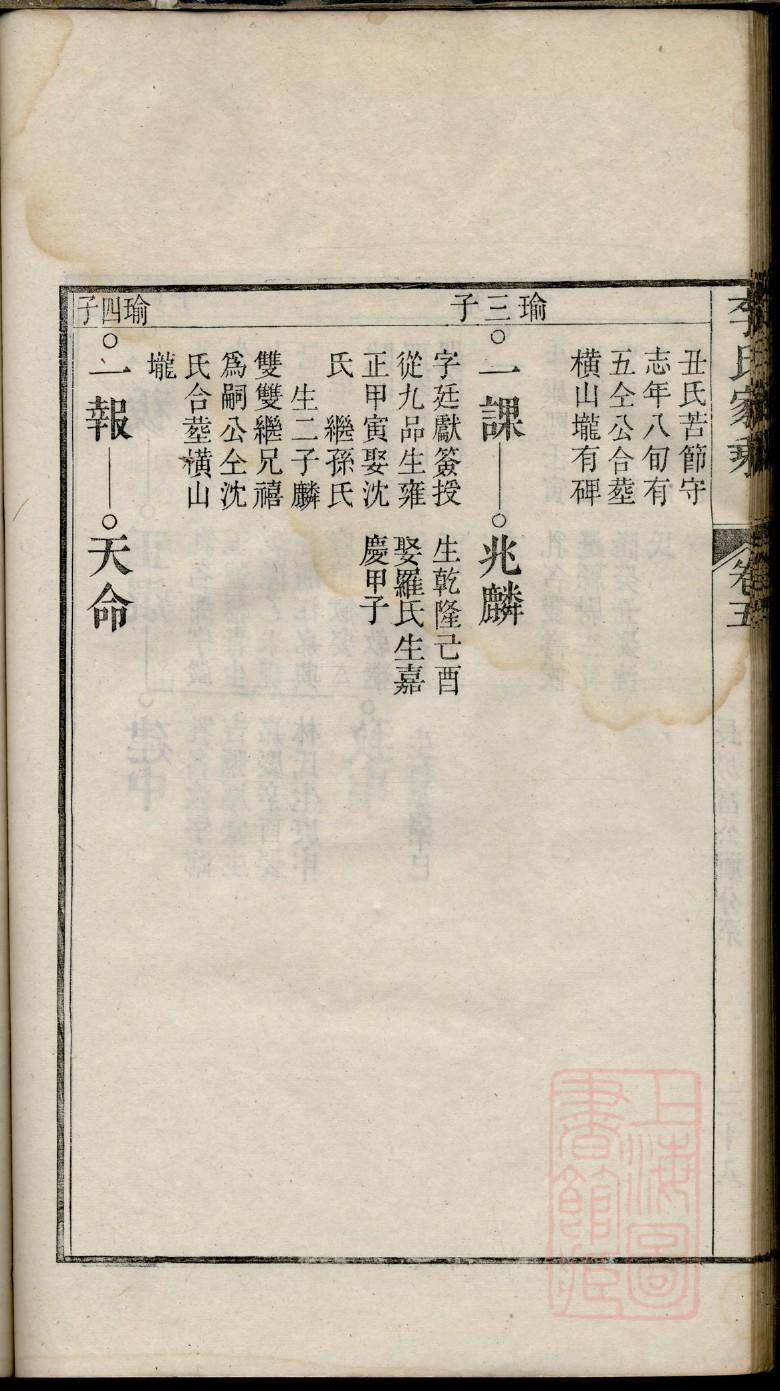 李氏家乘
卷五
丑氏苦節守
志年八旬有
五仝公合塟
橫山壠有碑
瑜三子
一課
字廷獻簽授
從九品生雍
正甲寅娶沈
氏 繼孫氏
生二子麟
雙雙繼兄禧
爲嗣公仝沈
氏合塟橫山
壠
兆麟
生乾隆己酉
娶羅氏生嘉
慶甲子
瑜四子
一報
天命
上海圖
書館藏